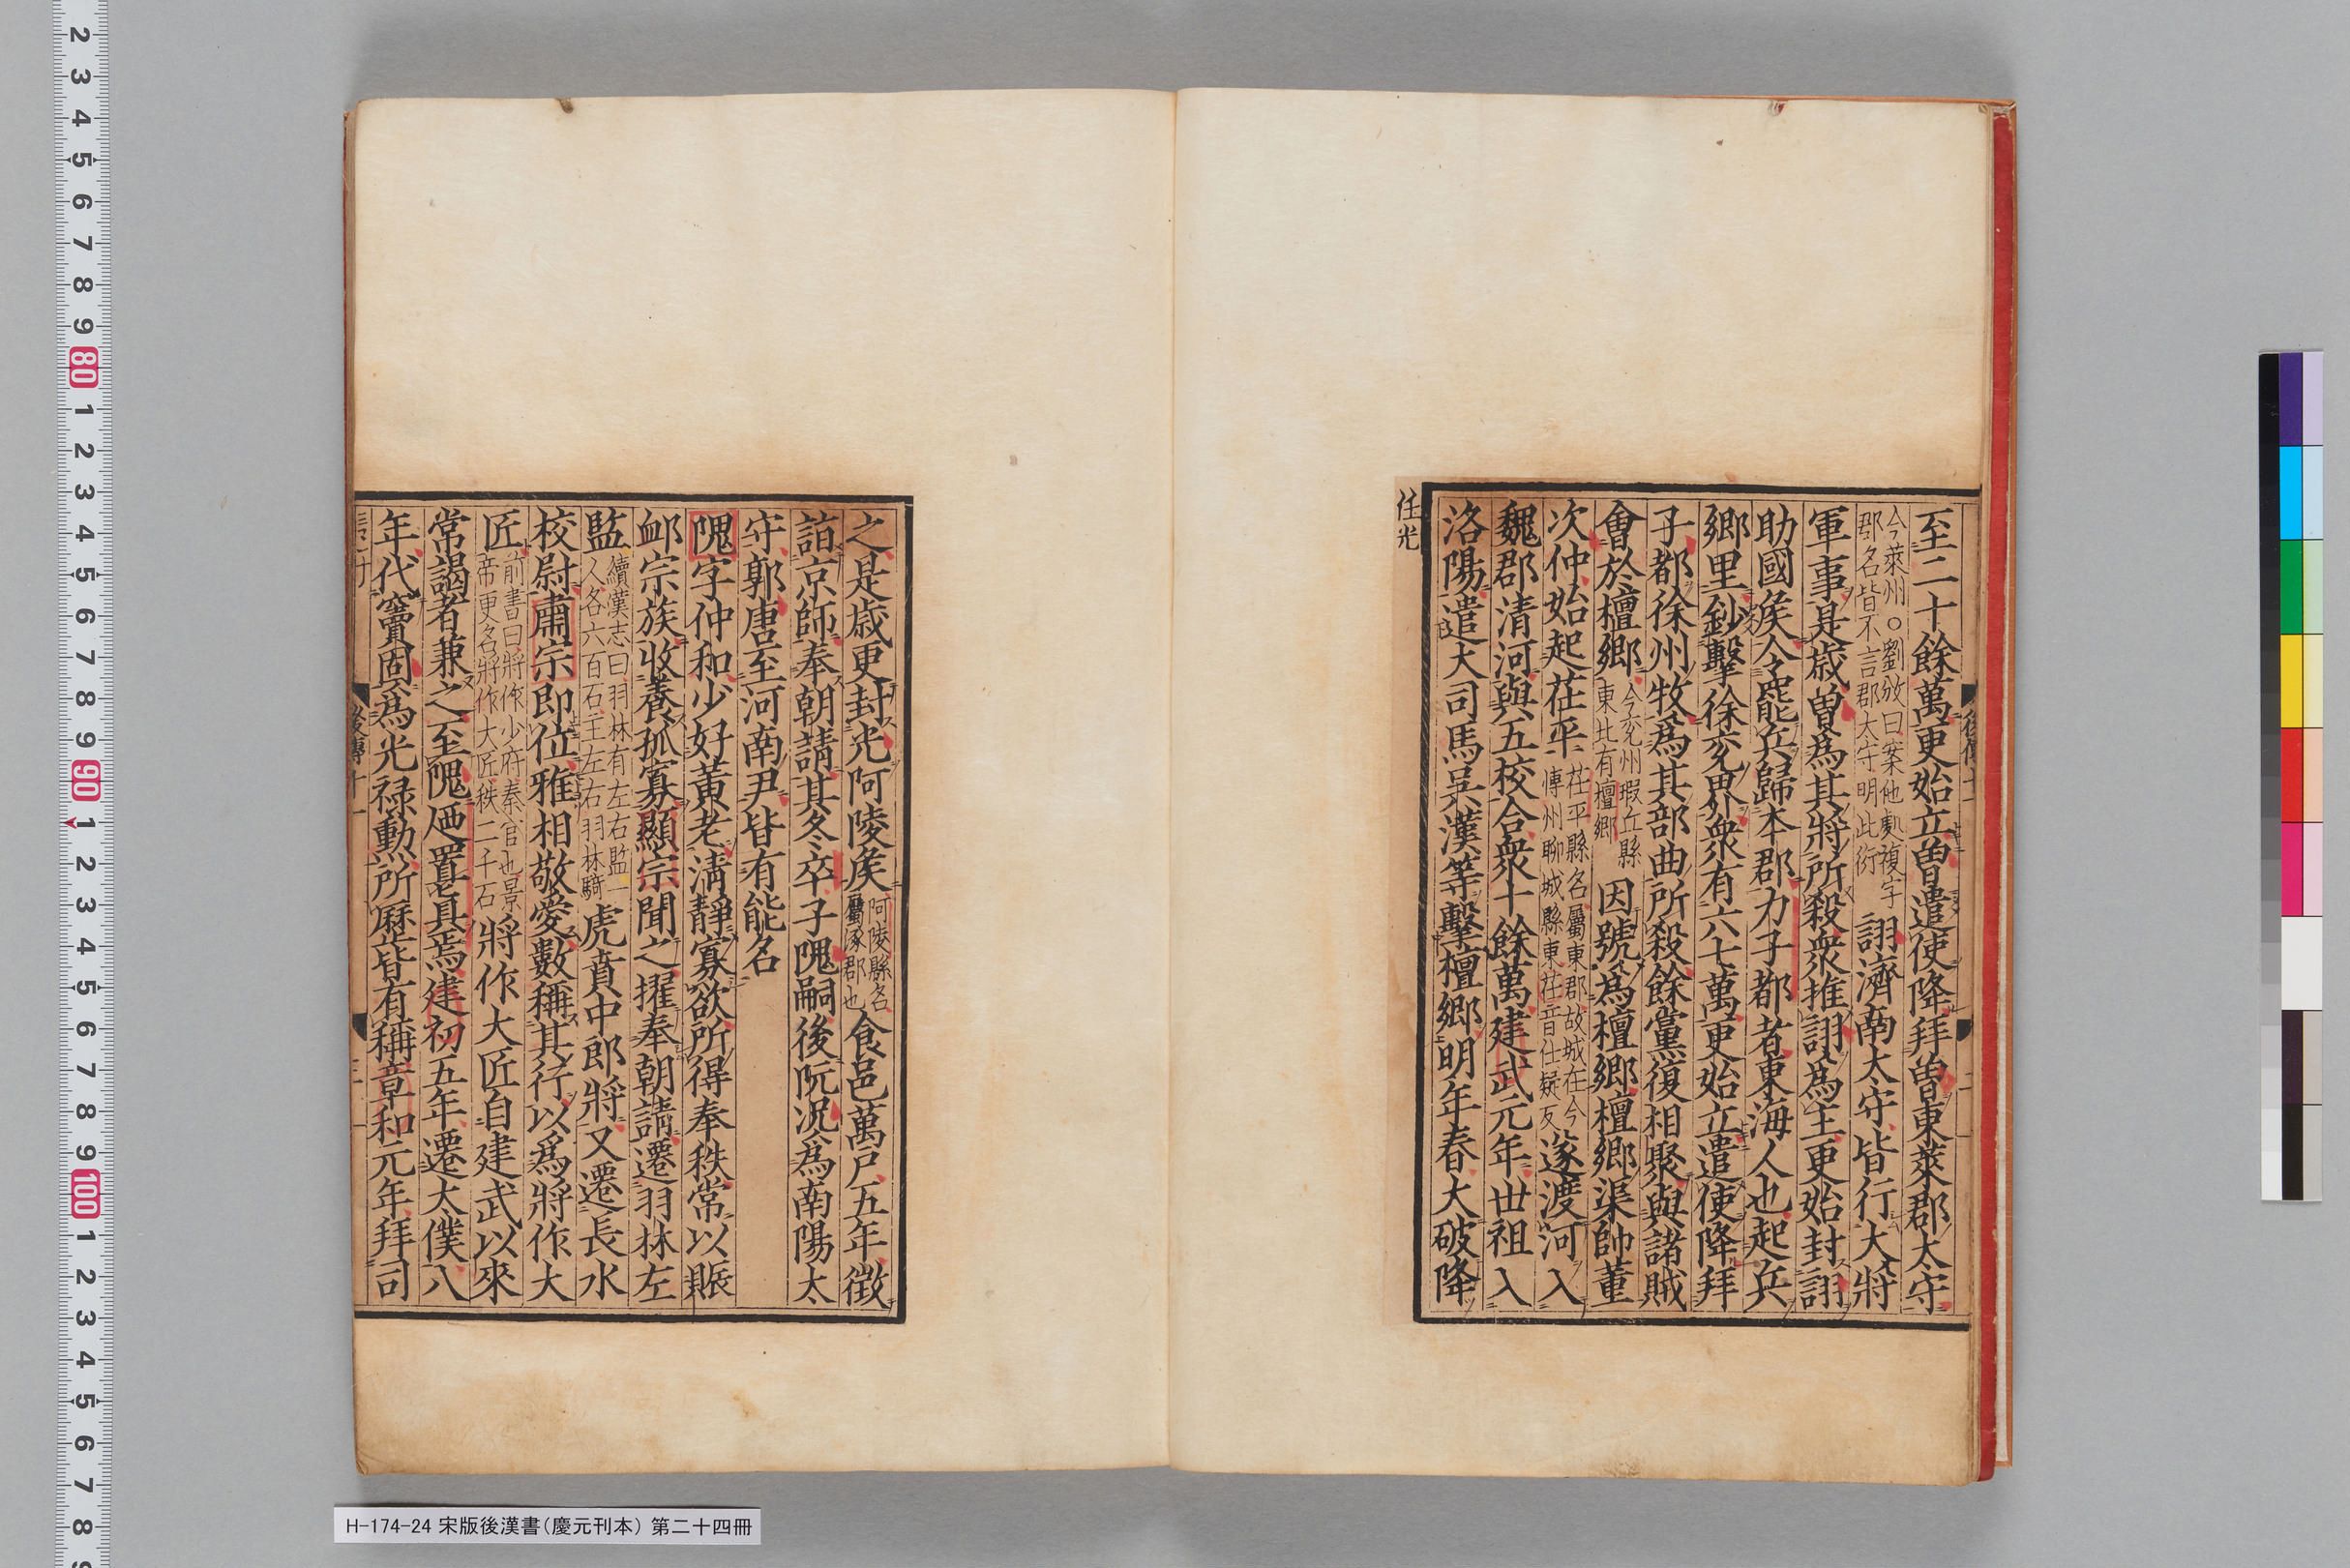 至二十餘萬更始立曽遣使降拜曽東萊郡太守
今萊州○劉攽曰案他處複字
郡名皆不言郡太守明此衍
詡濟南太守皆行大將
軍事是歲曽爲其將所殺衆推詡爲主更始封詡
助國侯令罷兵歸本郡力子都者東海人也起兵
鄉里鈔擊徐兖界衆有六七萬更始立遣使降拜
子都徐州牧爲其部曲所殺餘黨復相聚與諸賊
會於檀鄉
今兖州瑕丘縣
東北有檀鄉
因號爲檀鄉檀鄉渠帥董
次仲始起茌平
茌平縣名屬東郡故城在今
博州聊城縣東茌音仕疑反
遂渡河入
魏郡清河與五校合衆十餘萬建武元年世祖入
洛陽遣大司馬吳漢等擊檀鄉明年春大破降
任光
之是歳更封光阿陵侯
阿陵縣名
屬涿郡也
食邑萬戸五年徵
詣京師奉朝請其冬卒子隗嗣後阮況爲南陽太
守郭唐至河南尹皆有能名
隗字仲和少好黃老清靜寡欲所得奉秩常以賑
卹宗族收養孤寡顯宗聞之擢奉朝請遷羽林左
監
續漢志曰羽林有左右監一
人各六百石主左右羽林騎
虎賁中郎將又遷長水
校尉肅宗即位雅相敬愛數稱其行以爲將作大
匠
前書曰將作少府秦官也景
帝更名將作大匠秩二千石
將作大匠自建武以來
常謁者兼之至隗迺置真焉建初五年遷太僕八
年代竇固爲光禄勳所歴皆有稱章和元年拜司
後傳十一
H-174-24 宋版後漢書（慶元刊本） 第二十四冊